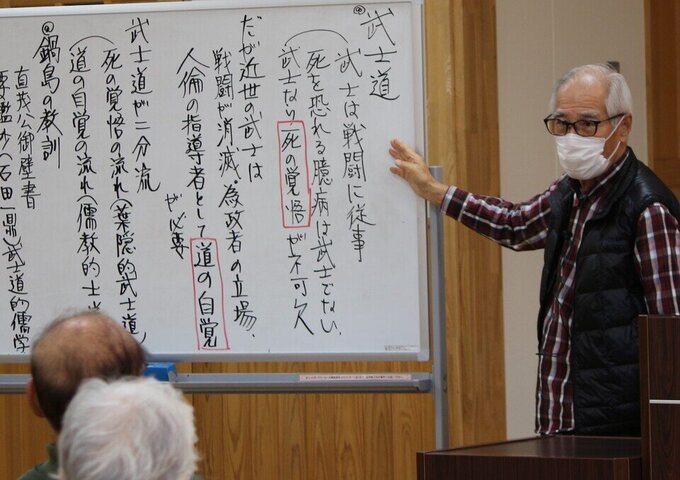 武士道
武士は戦闘に従事
死を恐れる臆病は武士でない、
武士なり死の覚悟が不可欠
だが近世の武士は
戦闘が消滅・為政者の立場、
人倫の指導者として道の自覚
が必要
武士道が二分流
死の覚悟の流れ(葉隠的武士道)
道の自覚の流れ(儒教的士
鍋島の教訓
直茂公御壁書
石田一鼎)武士道的儒学